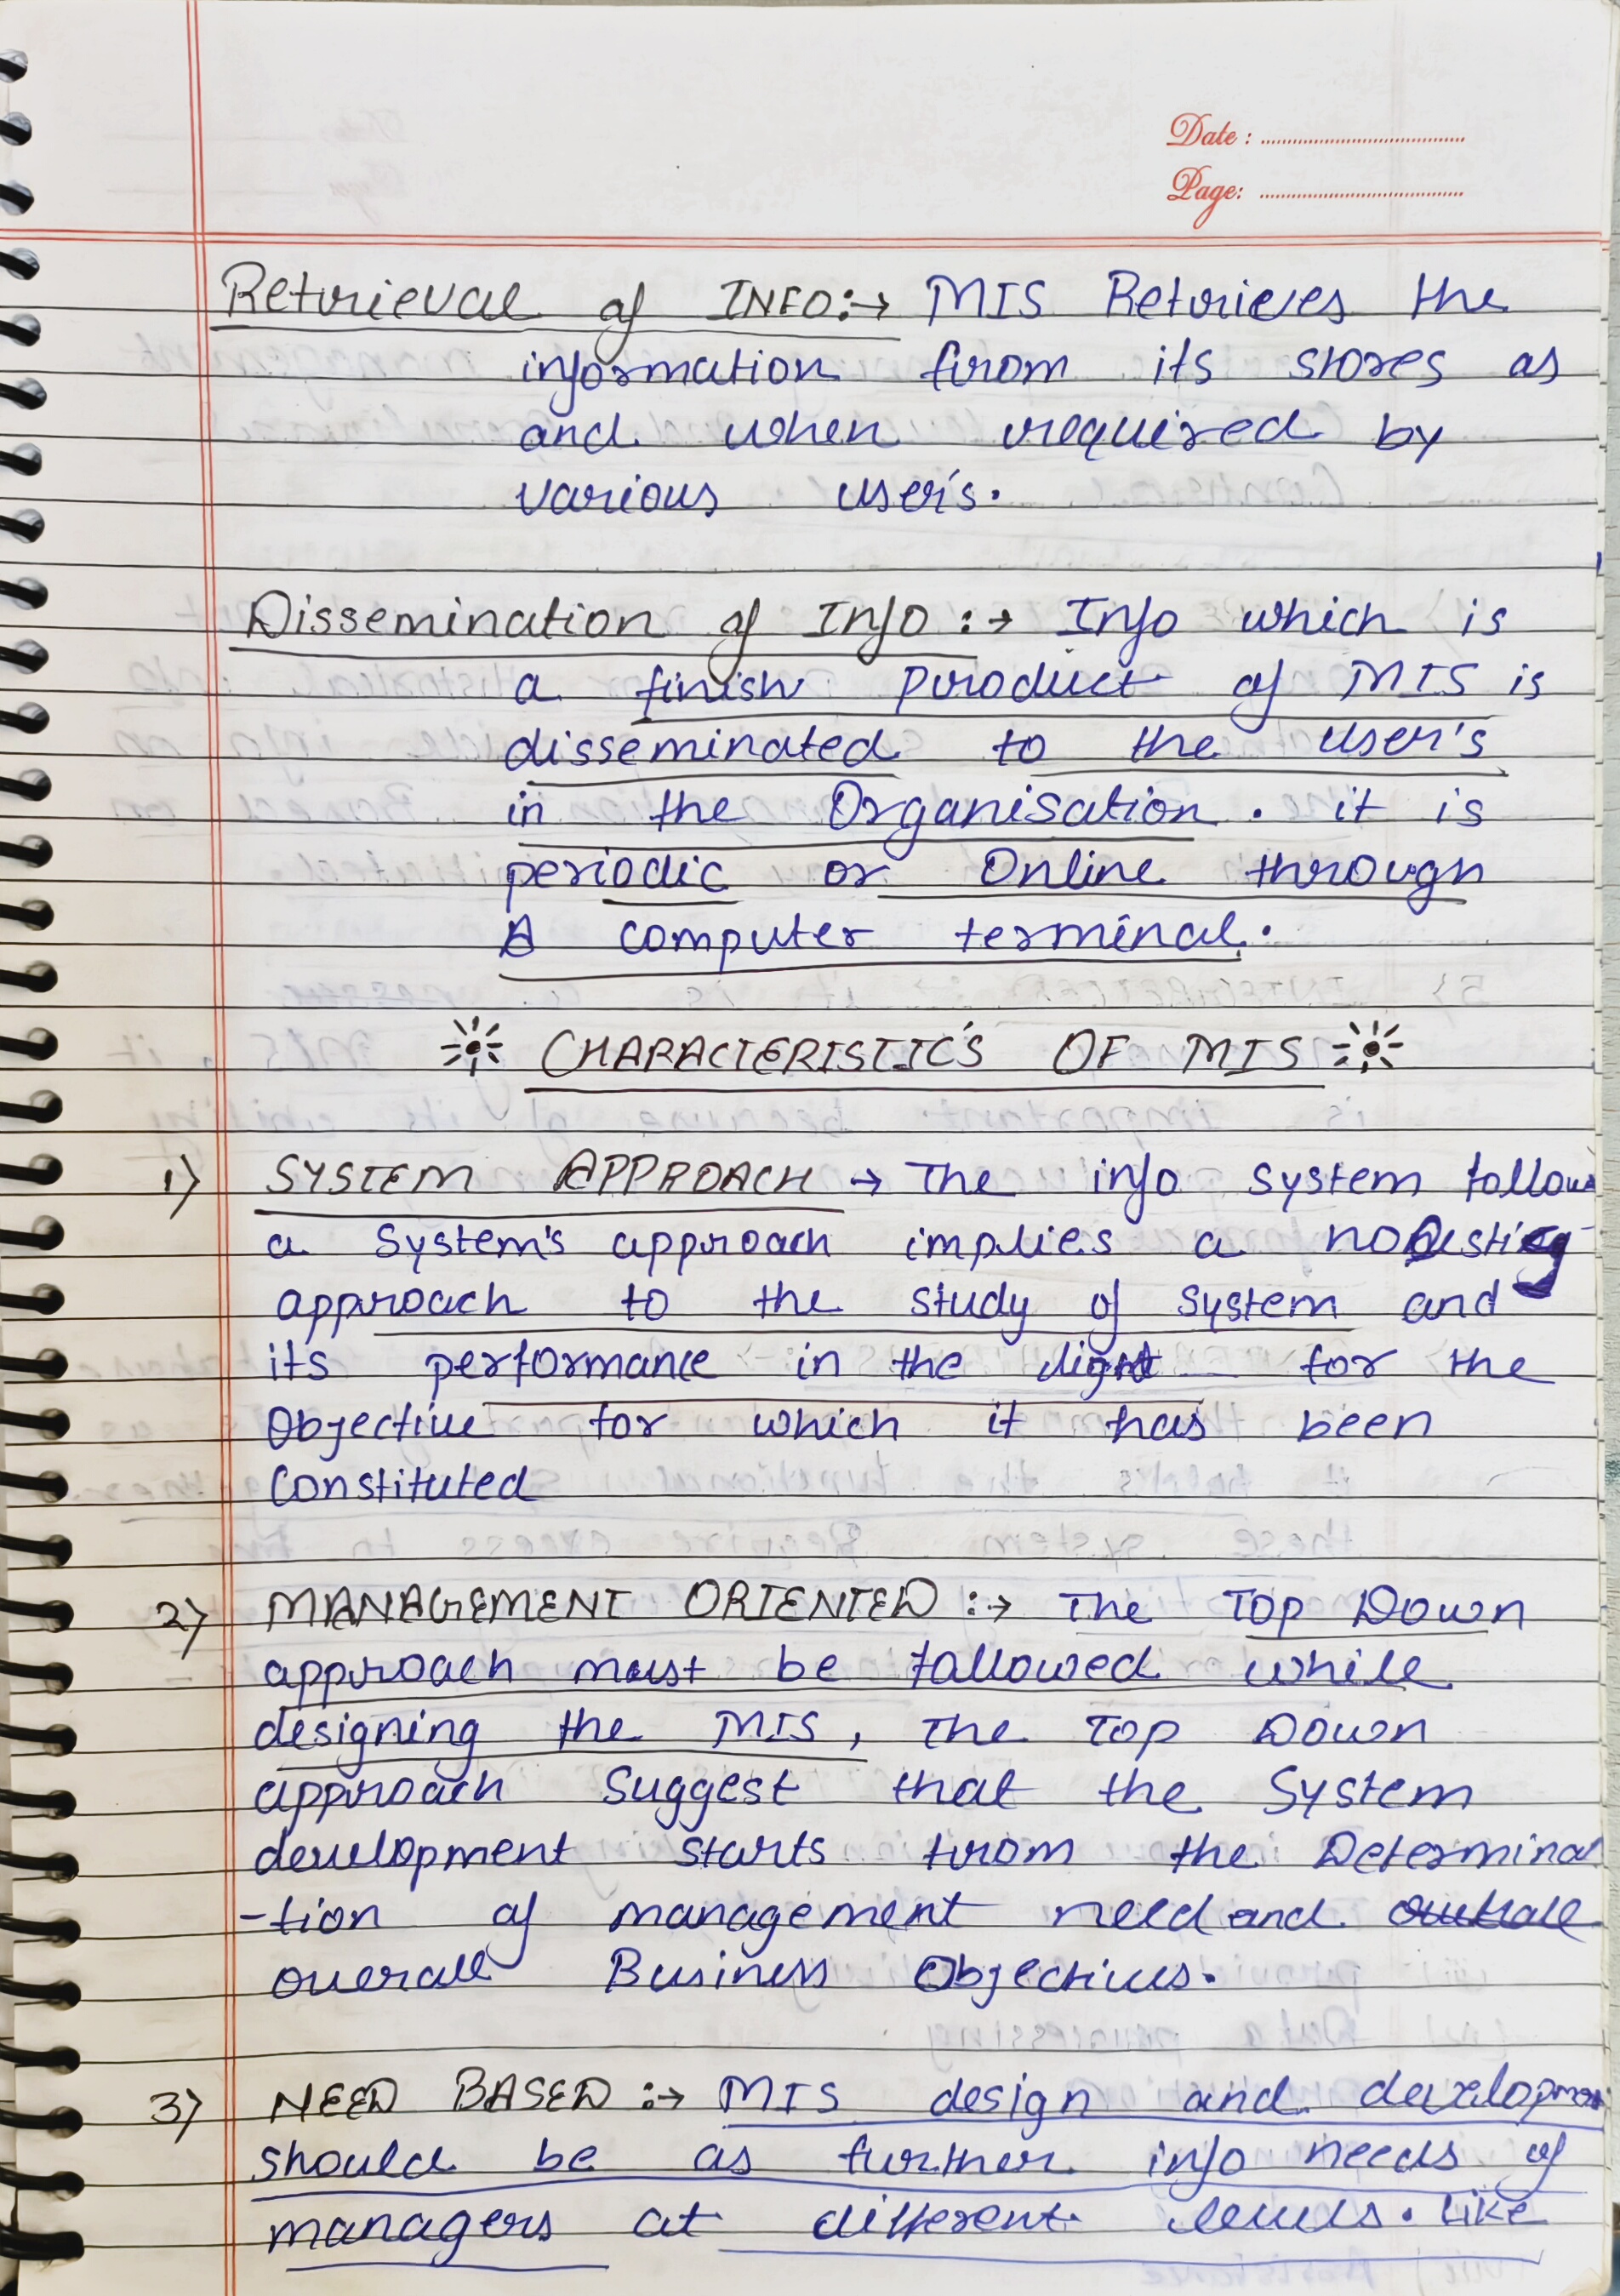 Date :
Page:
Retrieval of INFO:→ MIS Retrieves the
information from its stores as
and when required by
various user's.
Dissemination of Info :→ Info which is
a finish product of MIS is
disseminated to the user's
in the Organisation. it is
periodic or Online through
A computer terminal.
CHARACTERISTIC'S OF MIS
1) SYSTEM APPROACH → The info system follows
a System's approach implies a
approach to the study of system and
it's performance in the light for the
Objective for which it has been
Constituted
2) MANAGEMENT ORIENTED :→ The Top Down
approach must be followed while
designing the MIS, The Top Down
approach Suggest that the System
development starts from the Determina
-tion of management need and
overall Business Objectives.
3) NEED BASED :→ MIS design and development
should be as further info needs of
managers at different levels. Like